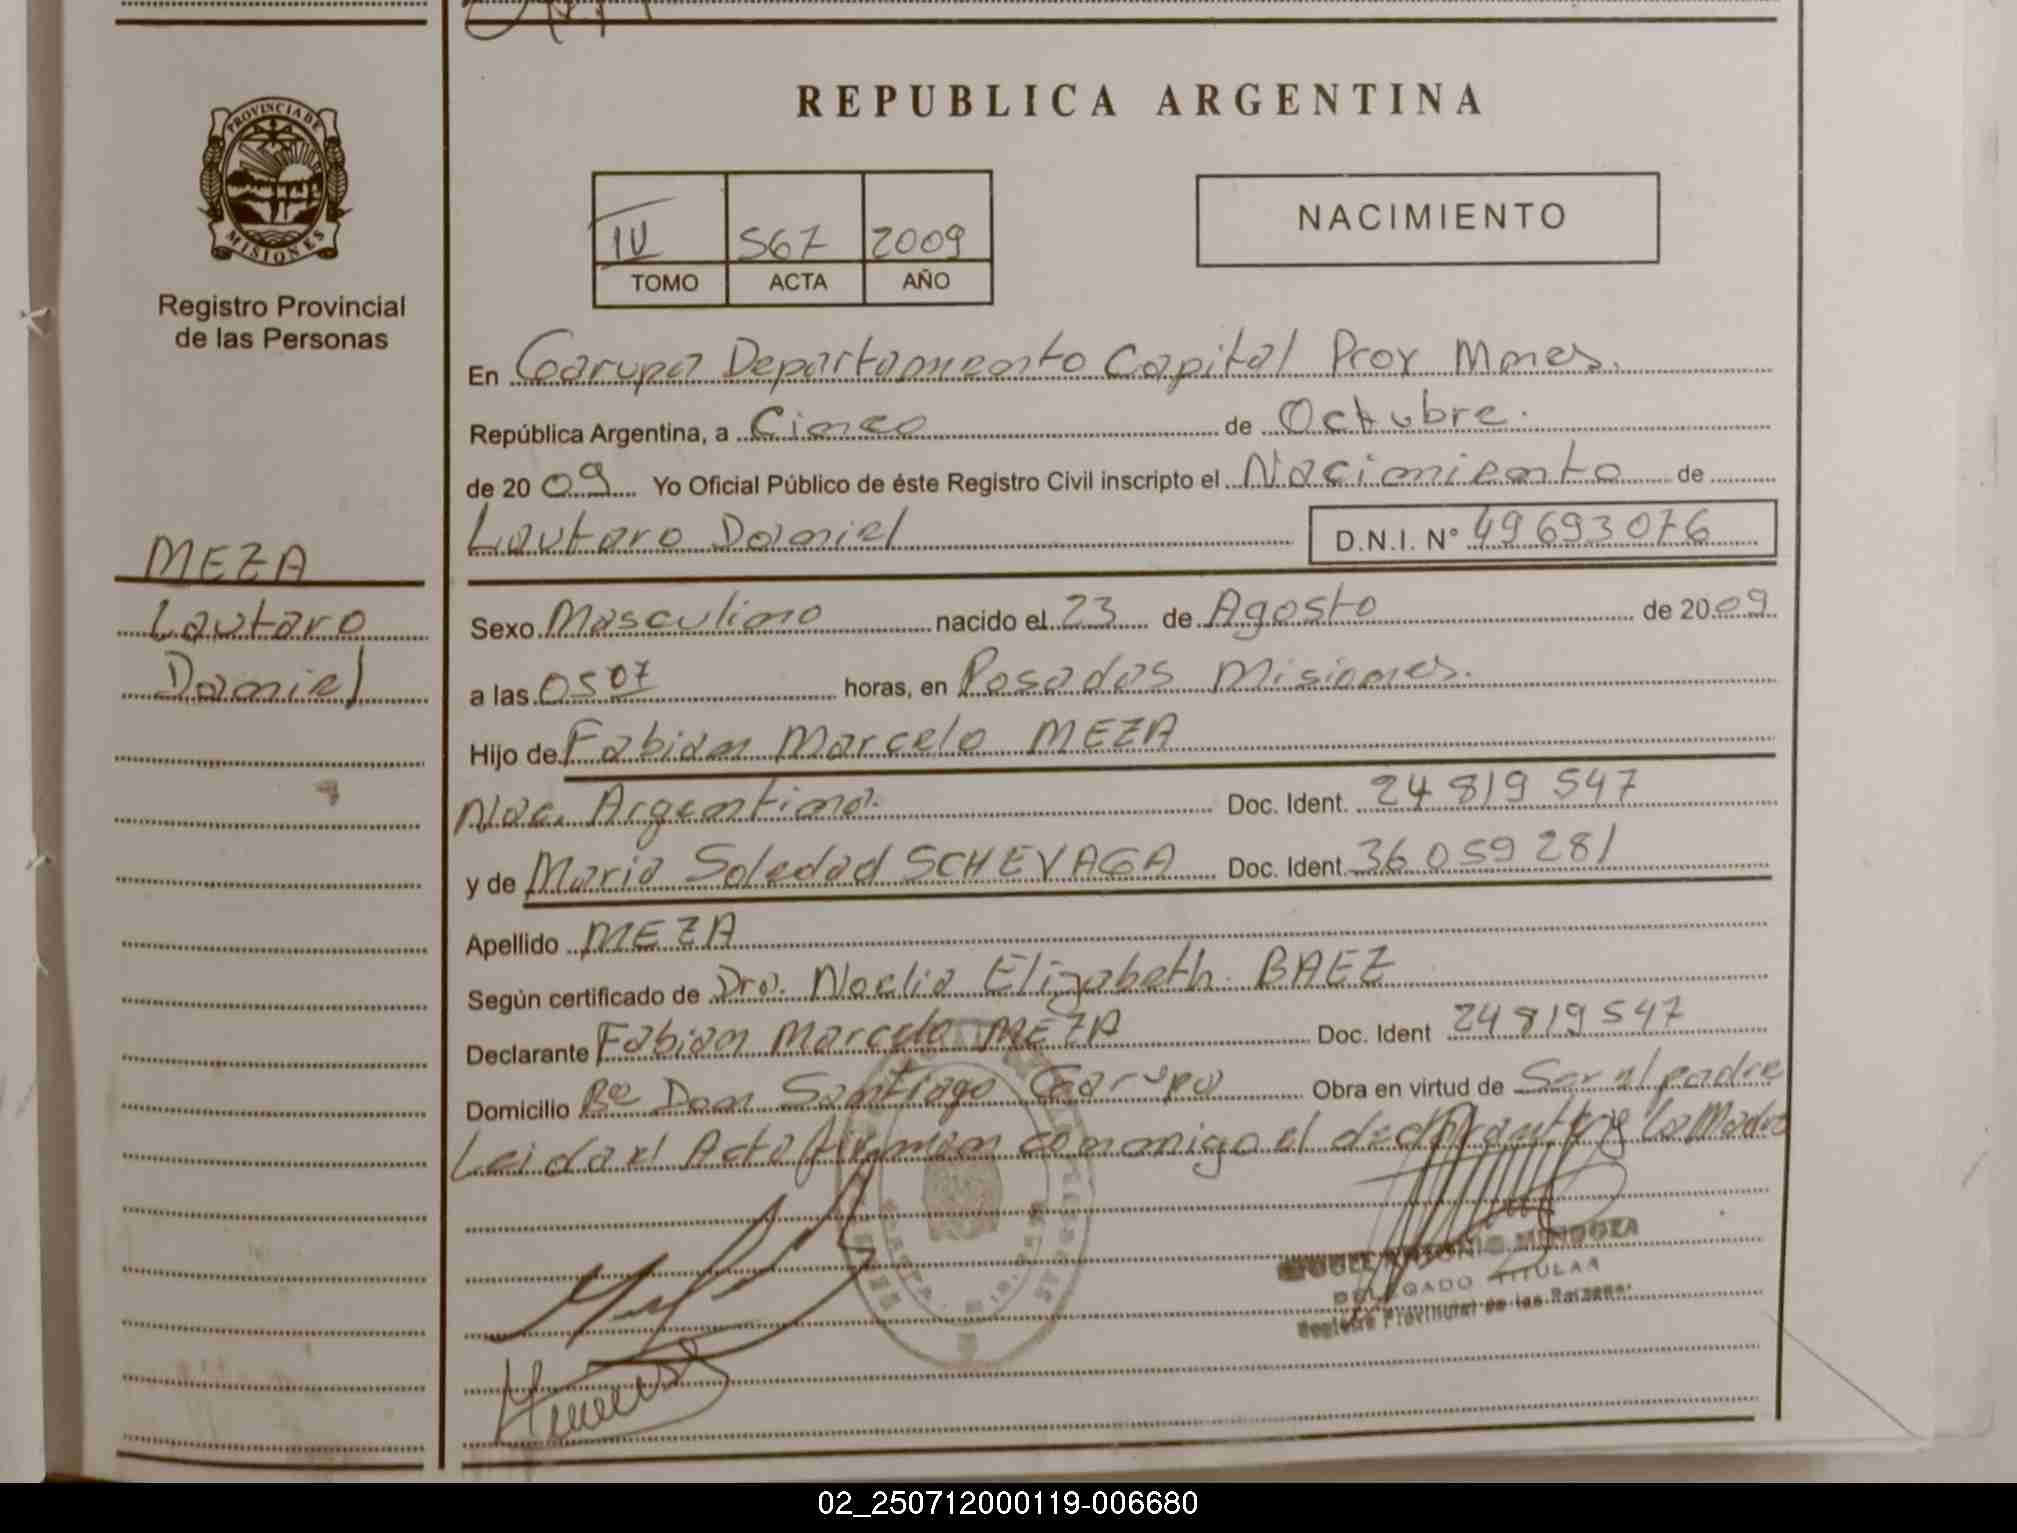 REPUBLICA ARGENTINA
PROVINCIA DE
MISIONES
Registro Provincial
de las Personas
IV 567 2009
TOMO ACTA AÑO
NACIMIENTO
En Garupa Departamento Capital Prov Mnes.
República Argentina, a Cinco de Octubre.
de 20 09 Yo Oficial Público de éste Registro Civil inscripto el Nacimiento de
Lautaro Daniel D.N.I. N° 49693076
MEZA
Lautaro
Daniel
Sexo Masculino nacido el 23 de Agosto de 2009
a las 0507 horas, en Posadas Misiones.
Hijo de Fabian Marcelo MEZA
Nac. Argentina. Doc. Ident. 24 819 547
y de Maria Soledad SCHEVAGA Doc. Ident. 36 059 281
Apellido MEZA
Según certificado de Dra. Noelia Elizabeth BAEZ
Declarante Fabian Marcelo MEZA Doc. Ident 24 819 547
Domicilio Bº Don Santiago Garupa Obra en virtud de Ser el padre
Leida el Acta firman conmigo el declarante y la Madre
MENDOZA
DELEGADO TITULAR
Registro Provincial de las Personas
02_250712000119-006680